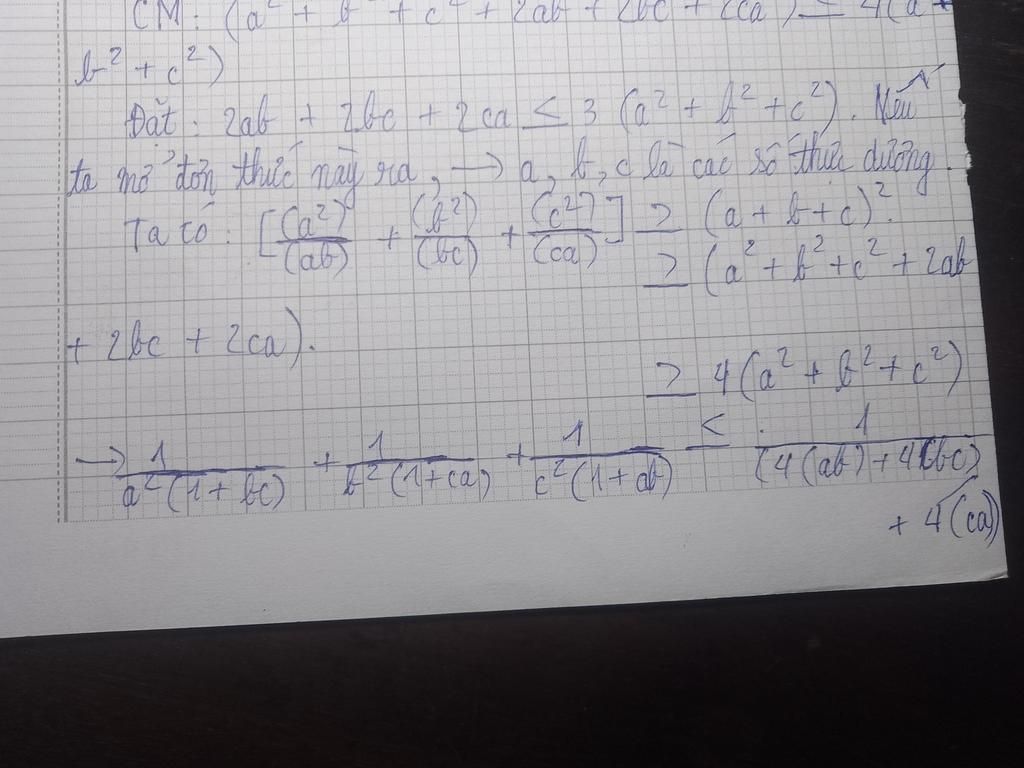 CM: (a² + b² + c² + 2ab + 2bc + 2ca) ≤ 4(a +
b² + c²)
Đặt: 2ab + 2bc + 2ca ≤ 3 (a² + b² + c²). Nếu
ta mở đơn thức này ra, → a, b, c là các số thức dương.
Ta có: [(a²)/(ab) + (b²)/(bc) + (c²)/(ca)] ≥ (a + b + c)².
≥ (a² + b² + c² + 2ab
+ 2bc + 2ca).
≥ 4(a² + b² + c²)
→ 1/a²(1 + bc) + 1/b²(1 + ca) + 1/c²(1 + ab) ≤ 1/(4(ab) + 4(bc)
+ 4(ca)